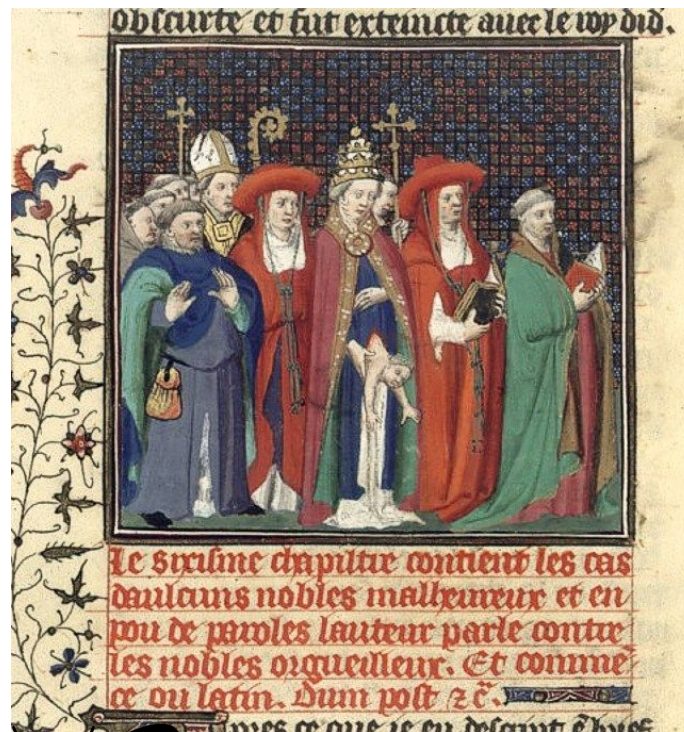 obscurte et fut exteincte avec le roy did.
Le sixisme chapiltre contient les cas
daulcuns nobles malheureux et en
pou de paroles lauteur parle contre
les nobles orgueilleux. Et comme
ce ou latin. Dum post ⁊ c̃.
pres ce que ie eu descript